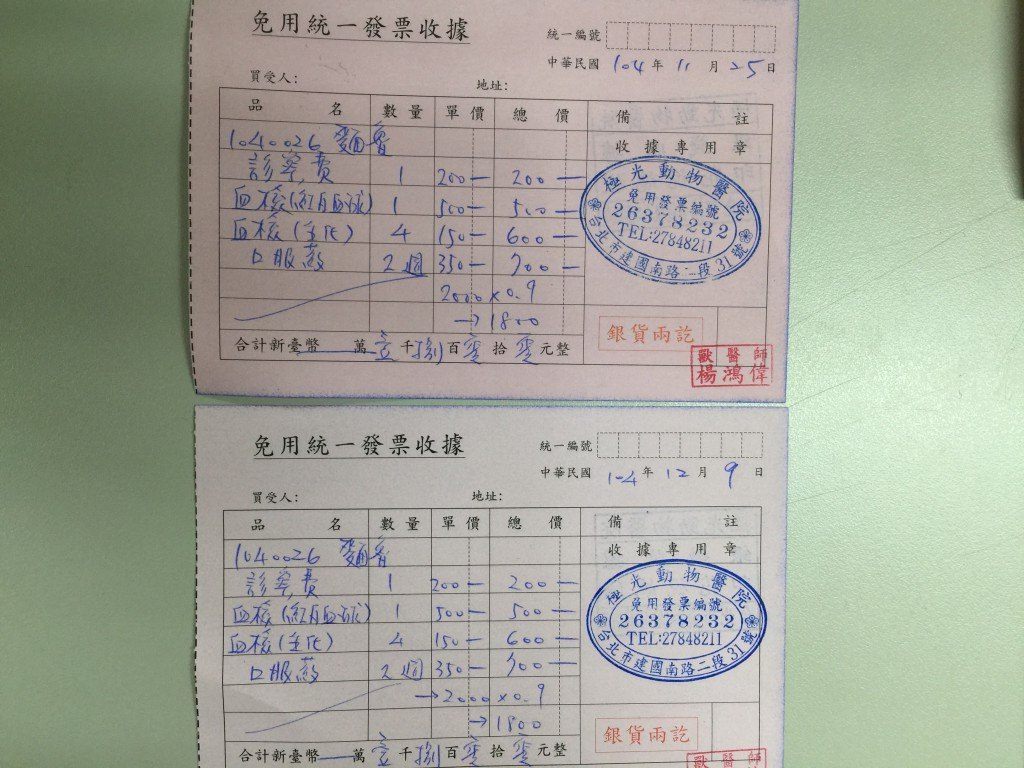 免用統一發票收據
統一編號
中華民國 104 年 11 月 25 日
買受人： 地址：
品名 數量 單價 總價 備註
收據專用章
1040026 麵
診察費 1 200— 200—
血檢(紅白血球) 1 500— 500—
血檢(生化) 4 150— 600—
口服藥 2週 350— 700—
2000×0.9
→1800
合計新臺幣 — 萬 壹 千 捌 百 零 拾 零 元整
極光動物醫院
免用發票編號
26378232
TEL:27848211
台北市建國南路二段31號
銀貨兩訖
獸醫師
楊鴻偉
免用統一發票收據
統一編號
中華民國 104 年 12 月 9 日
買受人： 地址：
品名 數量 單價 總價 備註
收據專用章
1040026 麵
診察費 1 200— 200—
血檢(紅白血球) 1 500— 500—
血檢(生化) 4 150— 600—
口服藥 2週 350— 700—
→2000×0.9
→1800
合計新臺幣 — 萬 壹 千 捌 百 零 拾 零 元整
極光動物醫院
免用發票編號
26378232
TEL:27848211
台北市建國南路二段31號
銀貨兩訖
獸醫師